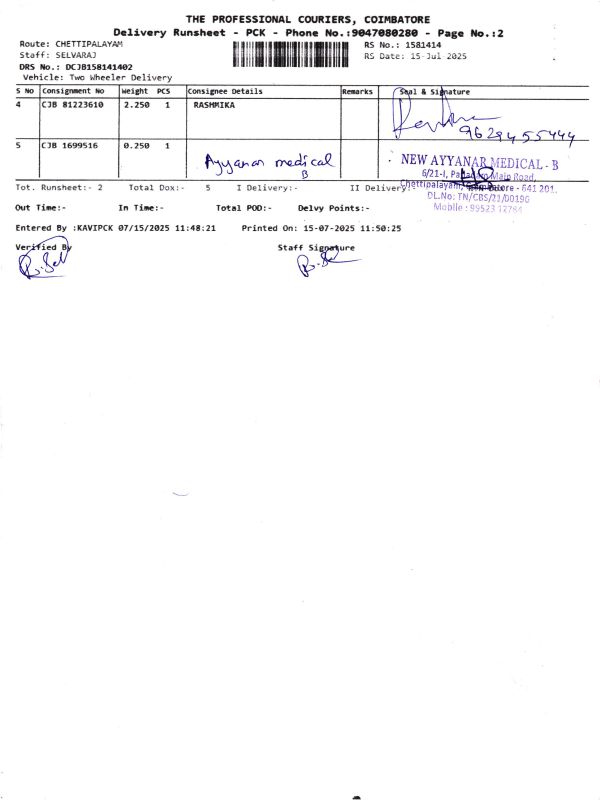 THE PROFESSIONAL COURIERS, COIMBATORE
Delivery Runsheet - PCK - Phone No.:9047080280 - Page No.:2
Route: CHETTIPALAYAM RS No.: 1581414
Staff: SELVARAJ RS Date: 15-Jul-2025
DRS No.: DCJB158141402
Vehicle: Two Wheeler Delivery
S No Consignment No Weight PCS Consignee Details Remarks Seal & Signature
4 CJB 81223610 2.250 1 RASHMIKA
9629455444
5 CJB 1699516 0.250 1
Ayyanar medical
B
NEW AYYANAR MEDICAL - B
6/21-I, Main Road,
Chettipalayam, Coimbatore - 641 201.
DL.No: TN/CBS/21/00196
Mobile : 99523 12784
Tot. Runsheet:- 2 Total Dox:- 5 I Delivery:- II Delivery:-
Out Time:- In Time:- Total POD:- Delvy Points:-
Entered By :KAVIPCK 07/15/2025 11:48:21 Printed On: 15-07-2025 11:50:25
Verified By Staff Signature